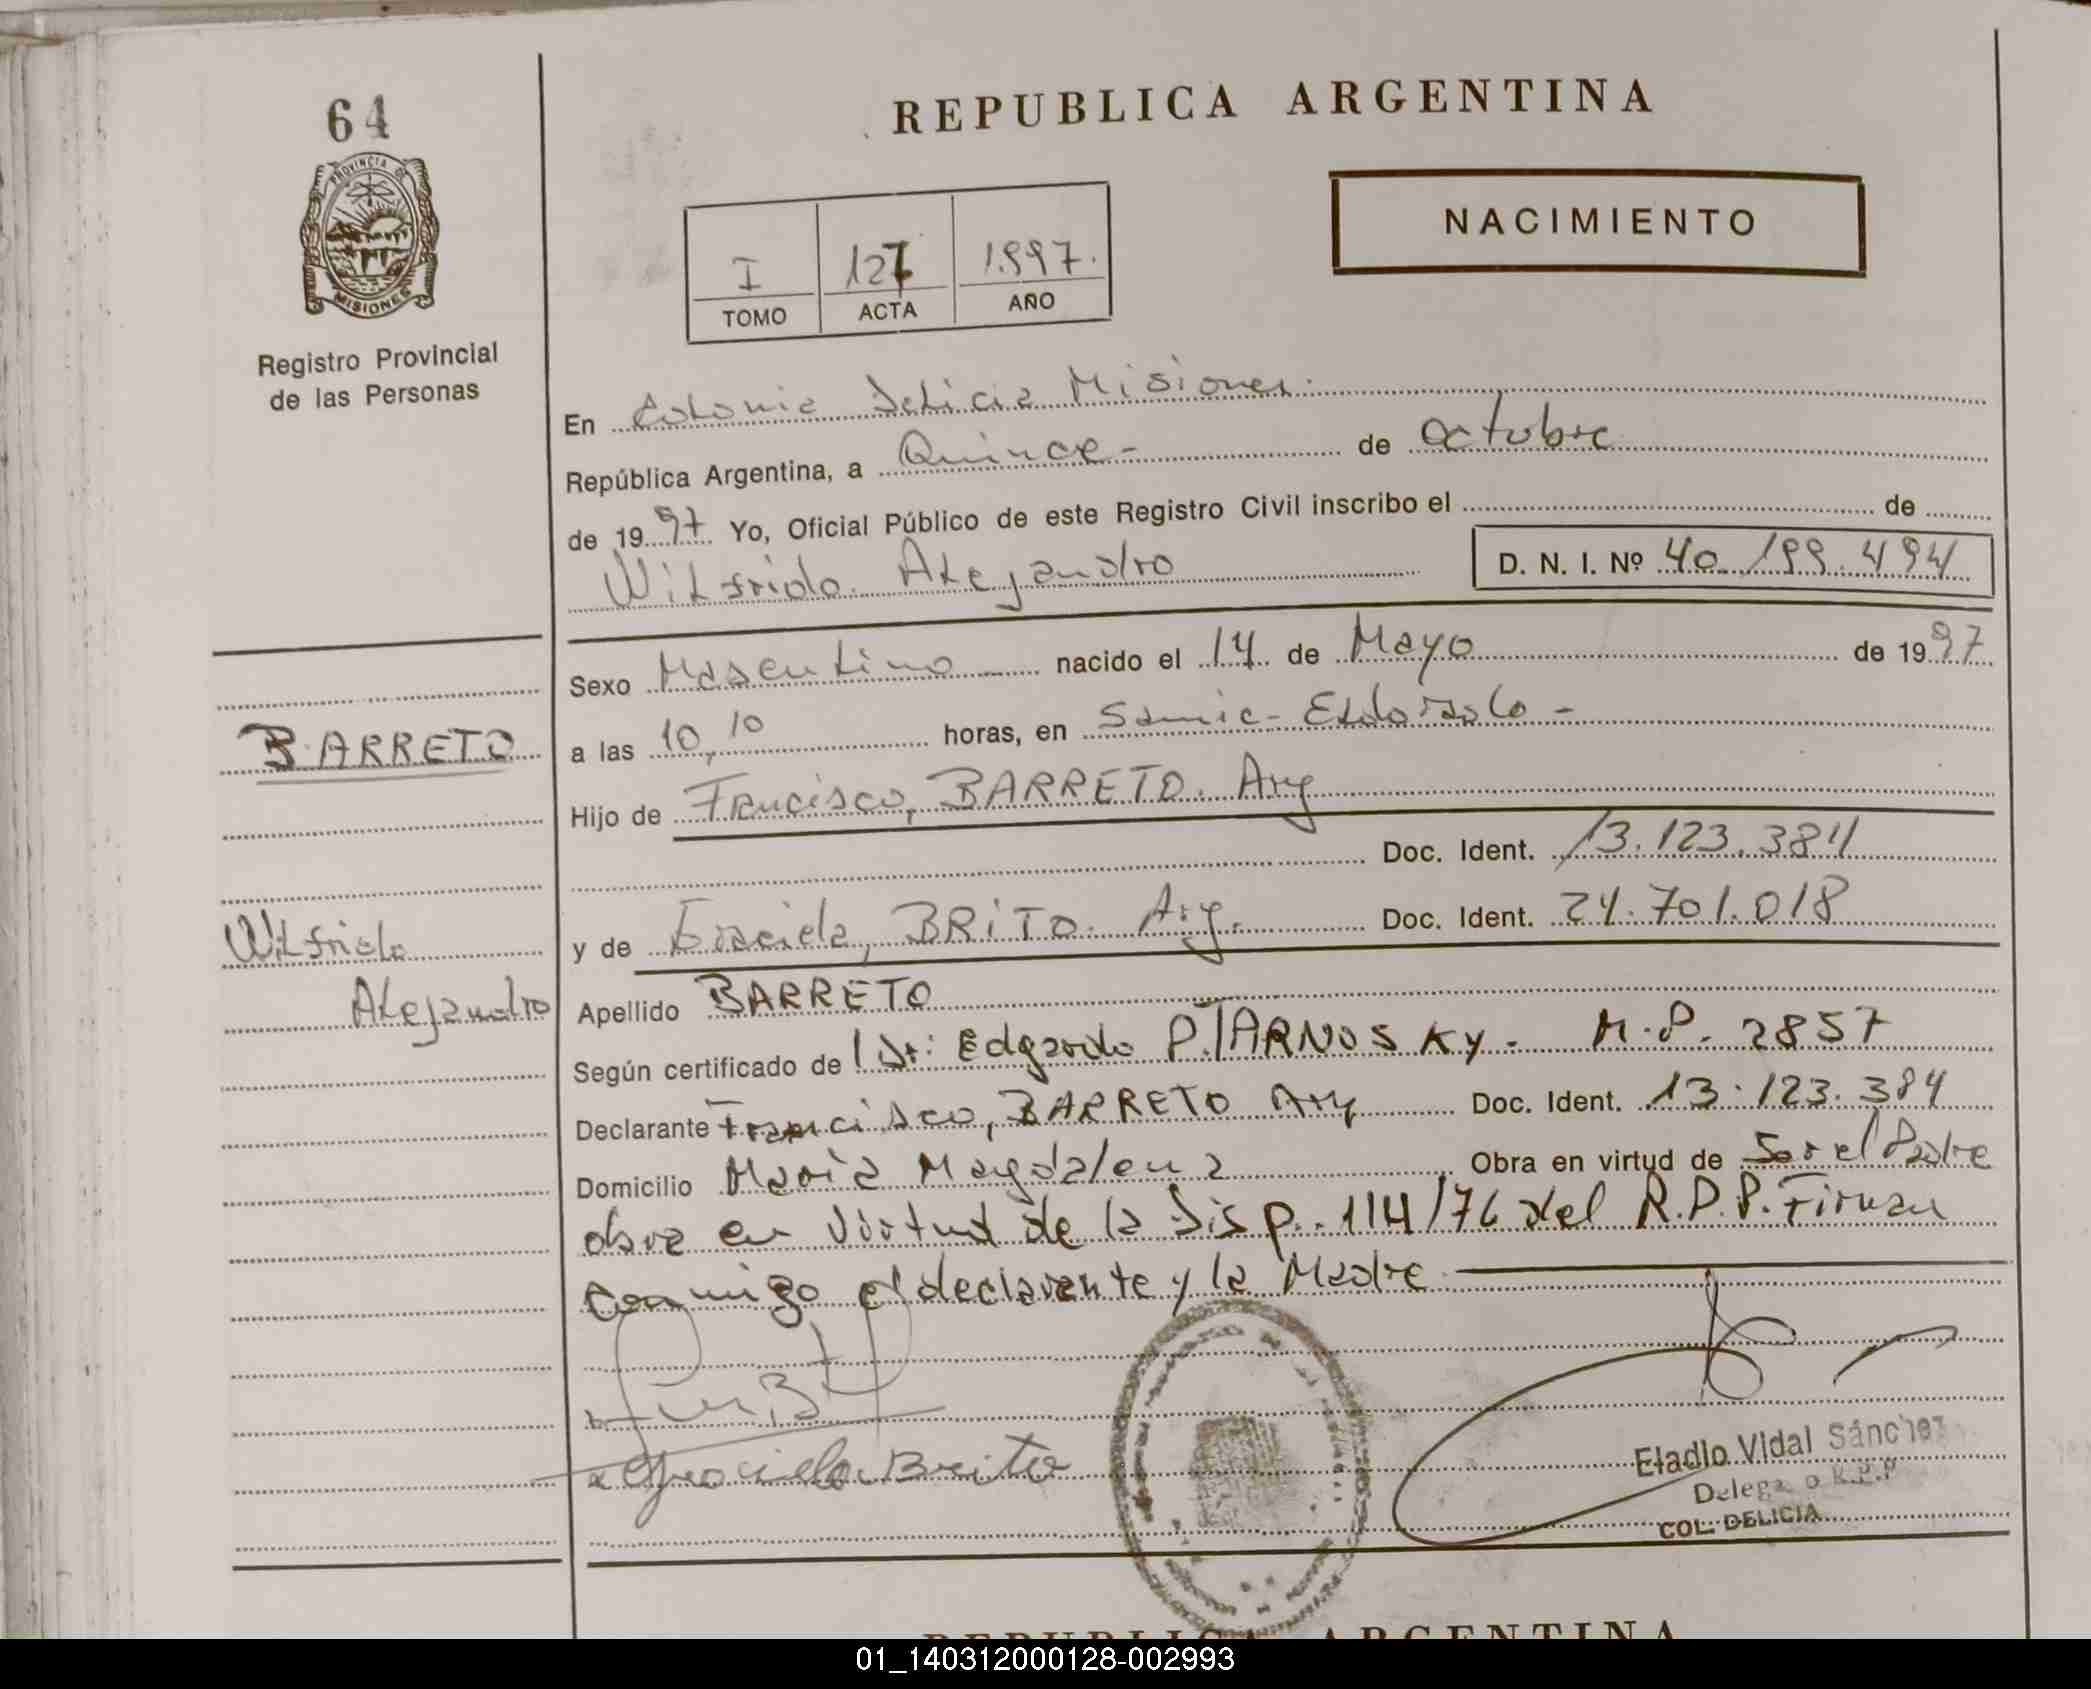 64
REPUBLICA ARGENTINA
PROVINCIA DE
MISIONES
NACIMIENTO
I 127 1.997.
TOMO ACTA AÑO
Registro Provincial
de las Personas
En Colonia Delicia Misiones.
República Argentina, a Quince - de octubre
de 1997 Yo, Oficial Público de este Registro Civil inscribo el de
Wilfrido Alejandro D. N. I. Nº 40.199.494
Sexo Masculino nacido el 14 de Mayo de 1997
BARRETO
a las 10,10 horas, en Samic - Eldorado -
Hijo de Francisco, BARRETO. Arg
Doc. Ident. 13.123.384
Wilfrido
y de Graciela, BRITO. Arg. Doc. Ident. 24.701.018
Alejandro
Apellido BARRETO
Según certificado de Dr: Edgardo P. TARNOSKY - M.P. 2857
Declarante Francisco, BARRETO Arg Doc. Ident. 13.123.384
Domicilio Maria Magdalena Obra en virtud de Ser el Padre
obra en virtud de la Disp. 114/76 del R.P.P. Firman
conmigo el declarante y la Madre
Graciela Brito
Eladio Vidal Sánchez
Delegado R.P.P
COL. DELICIA
REPUBLICA ARGENTINA
01_140312000128-002993